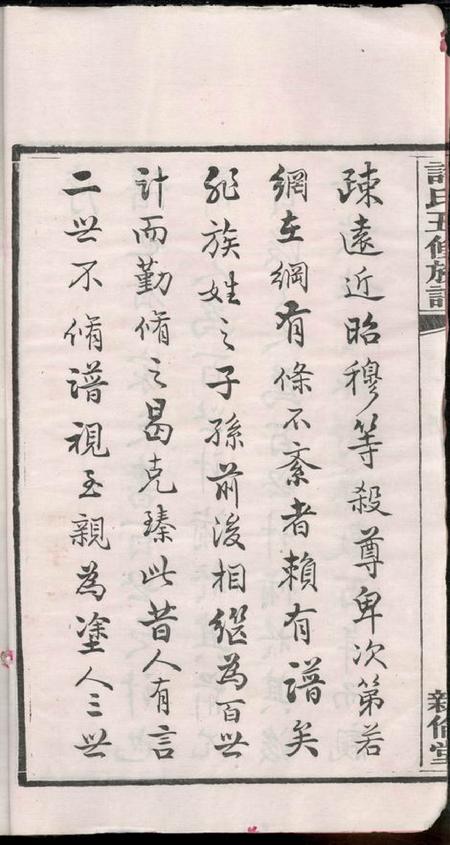 氏五修族譜
堂
疎遠近昭穆等殺尊卑次第若
網在綱有條不紊者賴有譜矣
非族姓之子孫前後相繼為百世
計而勤脩之曷克臻此昔人有言
二世不脩譜視至親為塗人三世